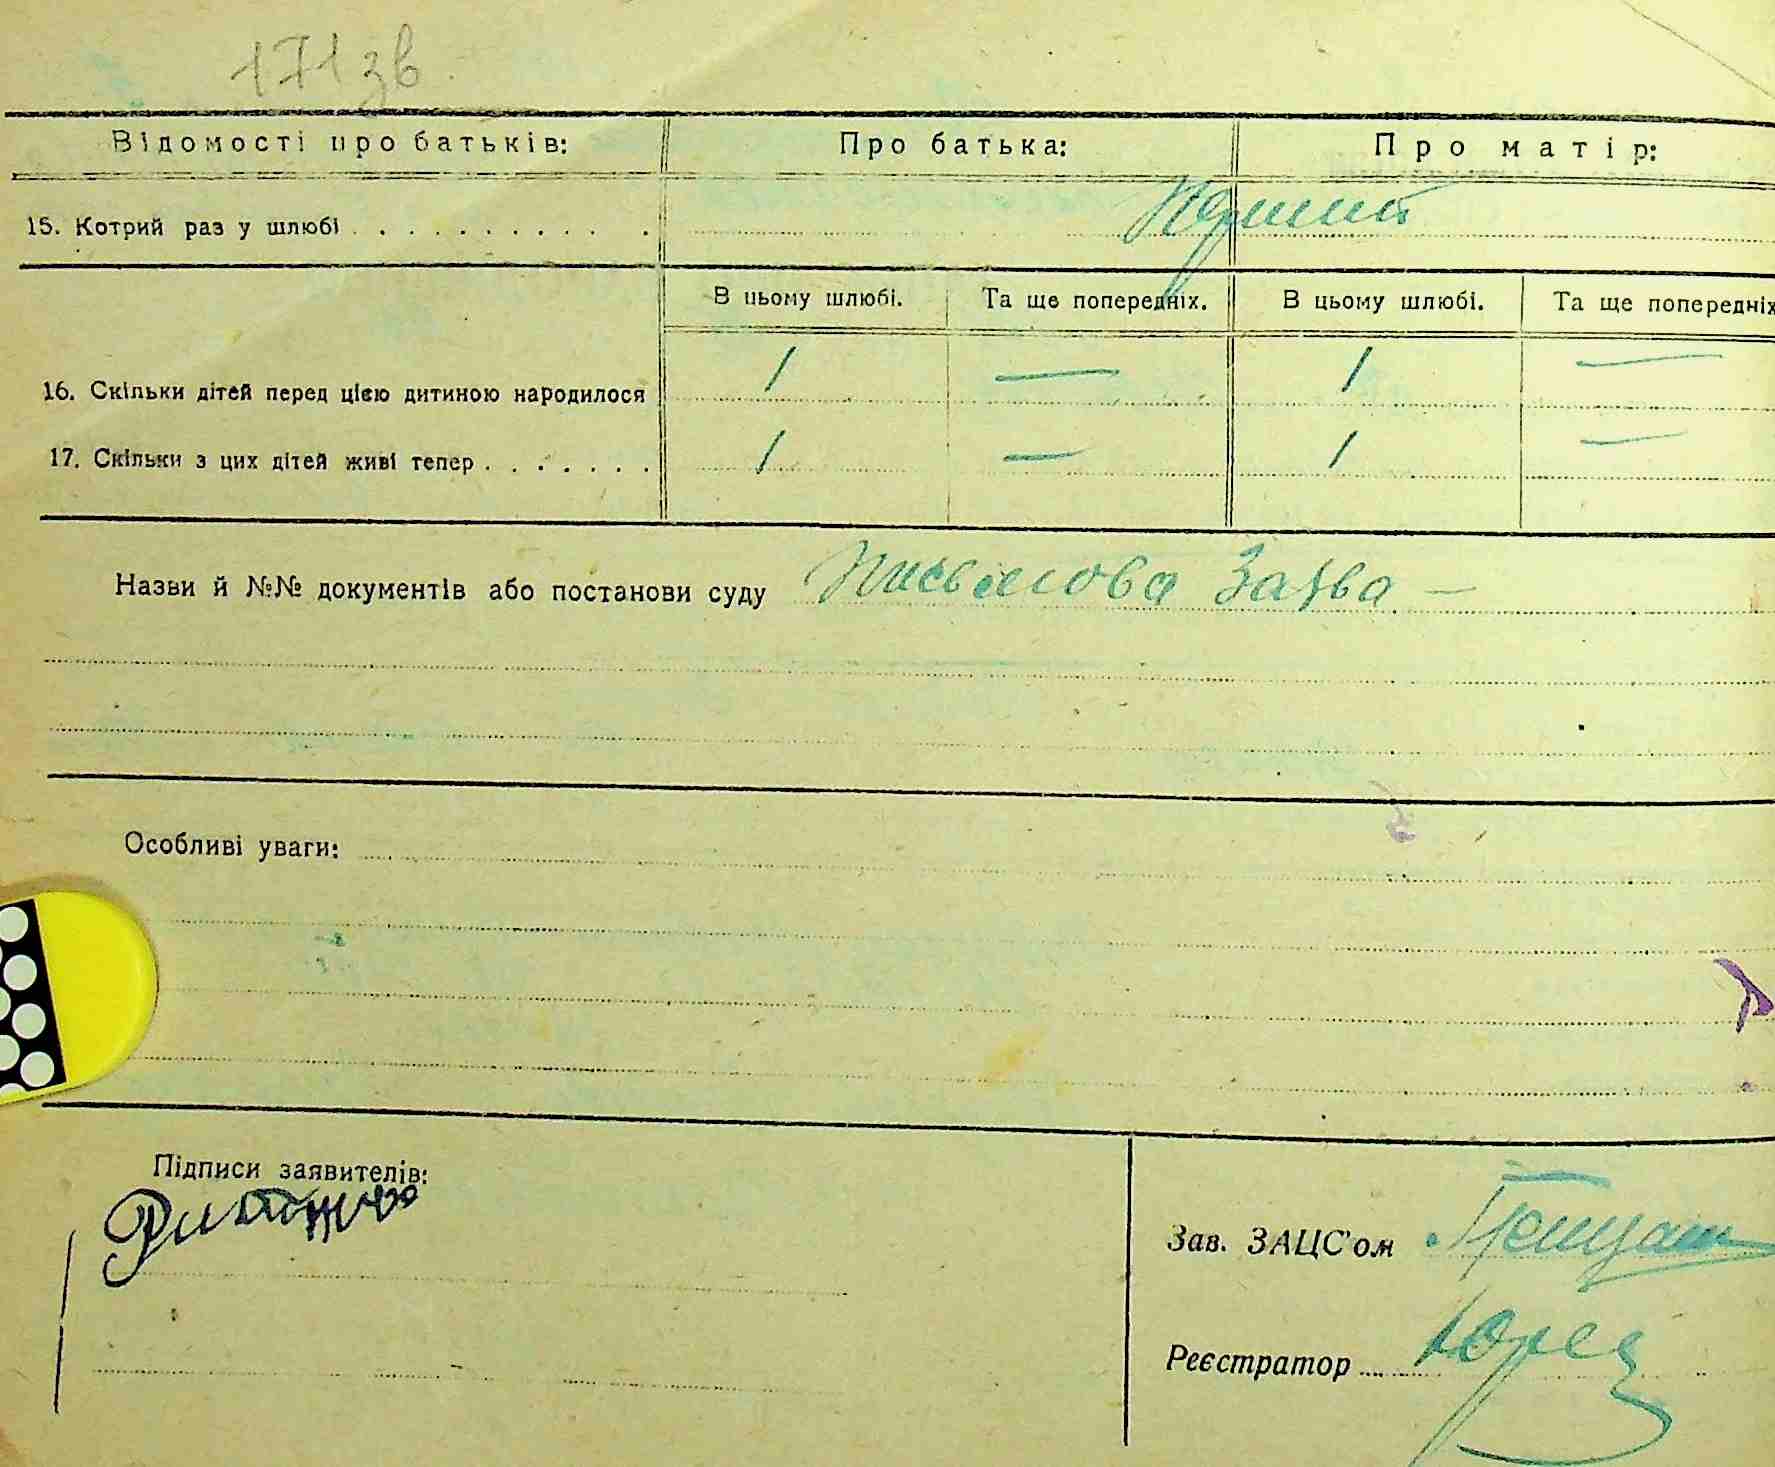 171 зв.
Відомості про батьків: Про батька: Про матір:
15. Котрий раз у шлюбі Перший
В цьому шлюбі. Та ще попередніх. В цьому шлюбі. Та ще попередніх
16. Скільки дітей перед цією дитиною народилося 1 — 1 —
17. Скільки з цих дітей живі тепер 1 — 1 —
Назви й №№ документів або постанови суду Письмова Заява —
Особливі уваги:
Підписи заявителів:
Зав. ЗАЦС'ом
Реєстратор